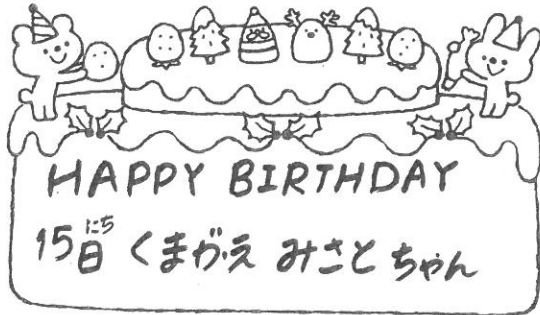 HAPPY BIRTHDAY
15日 くまがえ みさと ちゃん
にち